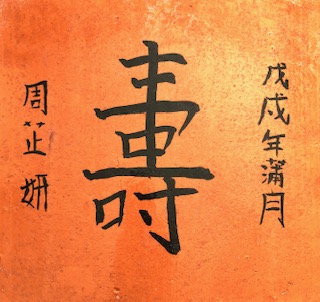 戊戌年蒲月
壽
周芷妍